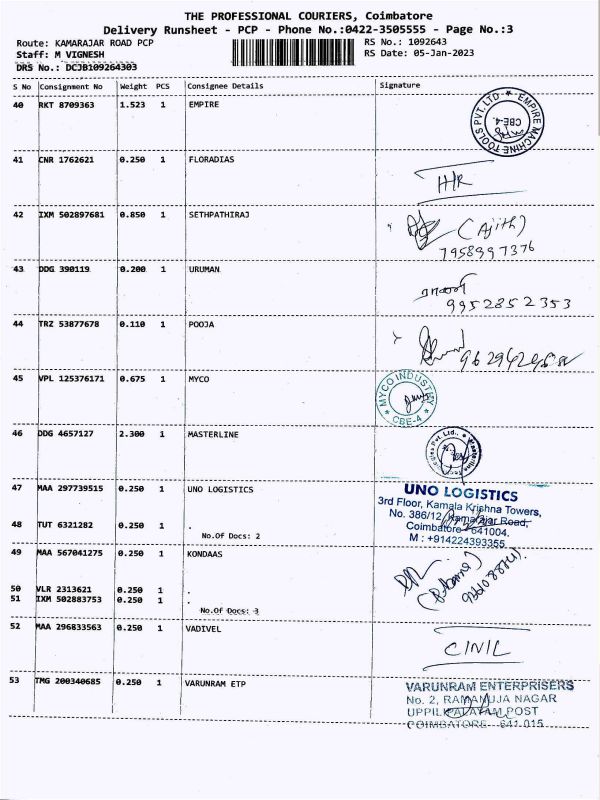 THE PROFESSIONAL COURIERS, Coimbatore
Delivery Runsheet - PCP - Phone No.:0422-3505555 - Page No.:3
Route: KAMARAJAR ROAD PCP RS No.: 1092643
Staff: M VIGNESH RS Date: 05-Jan-2023
DRS No.: DCJB109264303
S No Consignment No Weight PCS Consignee Details Signature
40 RKT 8709363 1.523 1 EMPIRE
EMPIRE MACHINE TOOLS PVT. LTD. ★
CBE-4.
41 CNR 1762621 0.250 1 FLORADIAS
H/R
42 IXM 502897681 0.850 1 SETHPATHIRAJ
(Ajith)
7958997376
43 DDG 390119 0.200 1 URUMAN
9952852353
44 TRZ 53877678 0.110 1 POOJA
45 VPL 125376171 0.675 1 MYCO
MYCO INDUSTRY
★ CBE-4 ★
46 DDG 4657127 2.300 1 MASTERLINE
Pvt. Ltd.,
47 MAA 297739515 0.250 1 UNO LOGISTICS
UNO LOGISTICS
3rd Floor, Kamala Krishna Towers,
No. 386/12, Kamarajar Road,
Coimbatore - 641004.
M : +914224393355
48 TUT 6321282 0.250 1 .
No.Of Docs: 2
49 MAA 567041275 0.250 1 KONDAAS
50 VLR 2313621 0.250 1 .
51 IXM 502883753 0.250 1 .
No.Of Docs: 3
52 MAA 296833563 0.250 1 VADIVEL
CINIL
53 TMG 200340685 0.250 1 VARUNRAM ETP
VARUNRAM ENTERPRISERS
No. 2, RAMANUJA NAGAR
UPPILIPALAYAM POST
COIMBATORE - 641 015